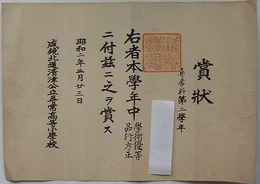 賞狀
尋常科第二學年
右者本學年中
學術優等
品行方正
ニ付茲ニ之ヲ賞ス
昭和二年三月廿三日
咸鏡北道清津公立尋常高等小學校